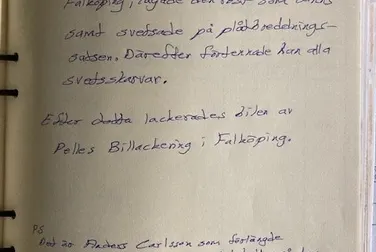 Falköping, lagade den rost som fanns
samt svetsade på plåtbreddnings-
satsen. Därefter förtennade han alla
svetsskarvar.
Efter detta lackerades bilen av
Pelles Billackering i Falköping.
PS
Det är Anders Carlsson som förlängde